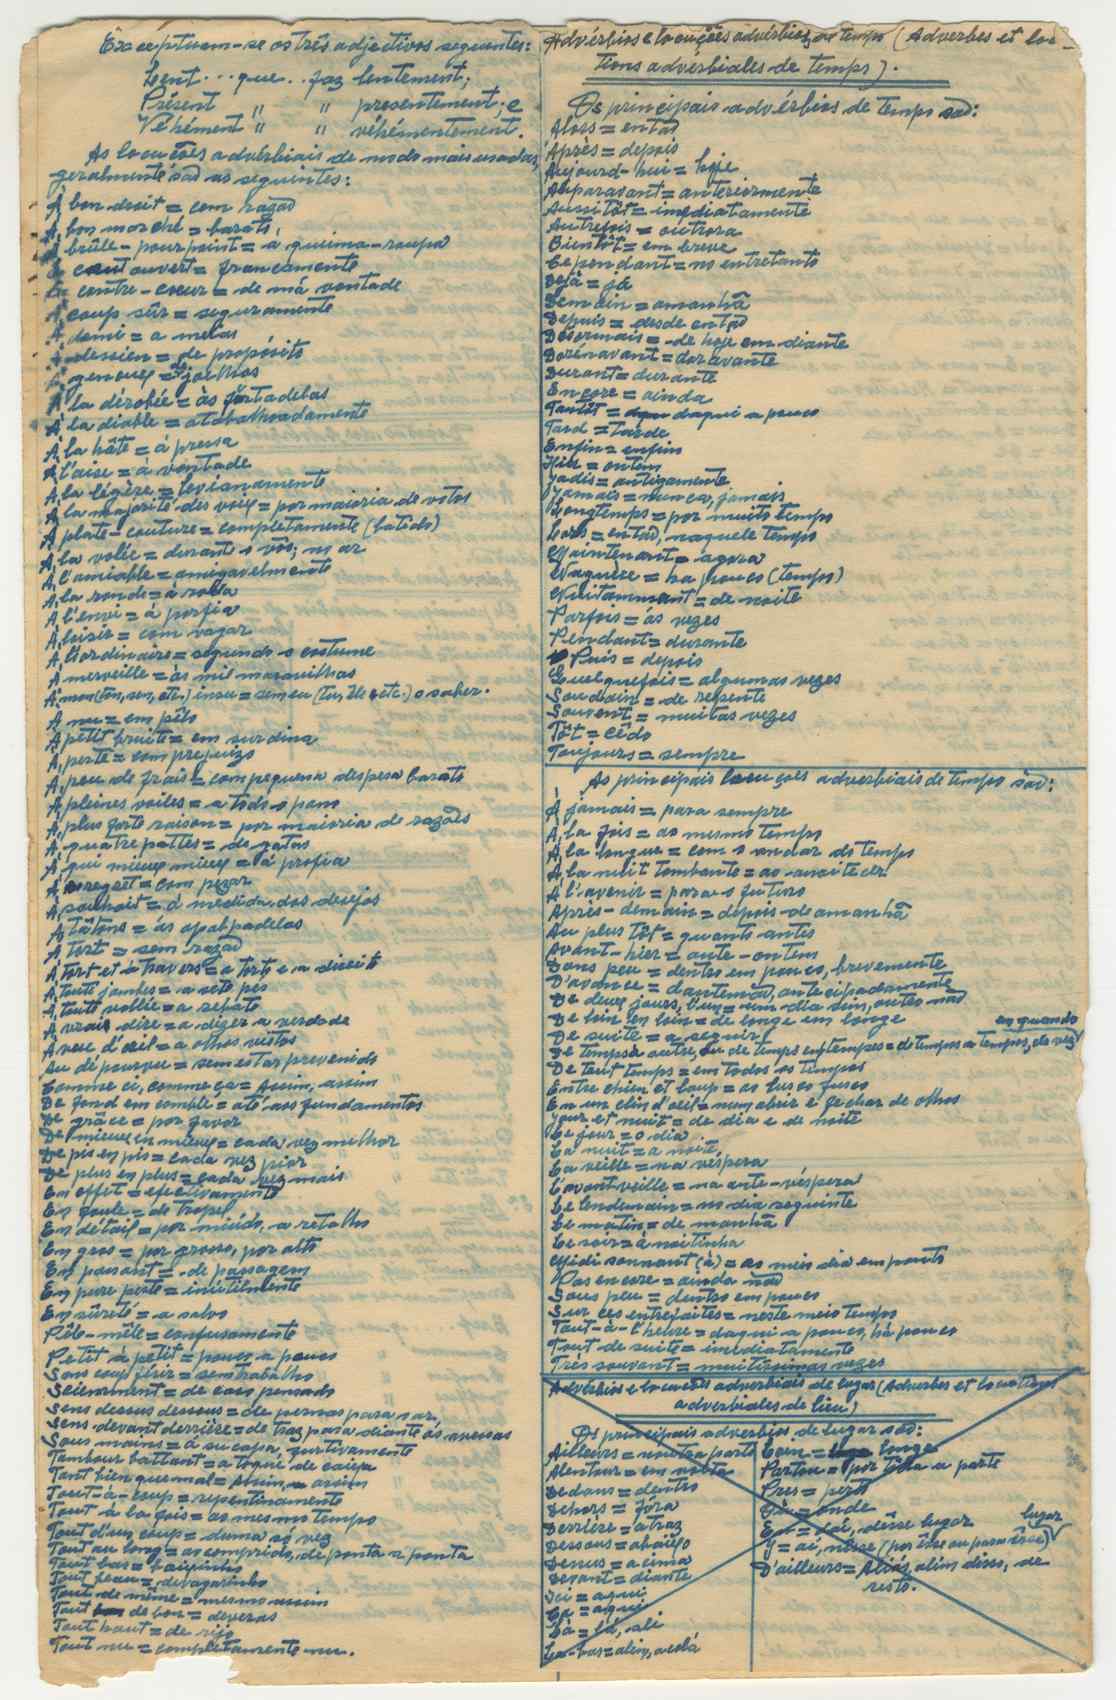 Exceptuam-se os três adjectivos seguintes:
Lent... que.. faz lentement;
Présent " " presentement; e
Véhément " " véhémentement.
As locuções advérbiais de modo mais usadas,
geralmente são as seguintes:
À bon droit = com razão
À bon marché = barato,
À brûle-pourpoint = a queima-roupa
À cœur ouvert = francamente
À contre-cœur = de má vontade
À coup sûr = seguramente
À demi = a meias
À dessein = de propósito
À genoux = de joelhos
À la dérobée = às furtadelas
À la diable = atabalhoadamente
À la hâte = à pressa
À l'aise = à vontade
À la légère = levianamente
À la majorité des voix = por maioria de votos
À plate-couture = completamente (batido)
À la volée = durante o vôo; no ar
À l'amiable = amigavelmente
À la ronde = à roda
À l'envi = à porfia
À loisir = com vagar
À l'ordinaire = segundo o costume
À merveille = às mil maravilhas
À mon (ton, son, etc.) insu = sem eu (tu, êle etc.) o saber.
À nu = em pêlo
À petit bruit = em surdina
À perte = com prejuizo
À peu de frais = com pequena despesa barato
À pleines voiles = a todo o pano
À plus forte raison = por maioria de razões
À quatre pattes = de gatas
À qui mieux mieux = à profia
À regret = com pezar
À souhait = à medida dos desejos
À tâtons = às apalpadelas
À tort = sem razão
À tort et à travers = a torto e a direito
À toute jambes = a sete pés
À toute volée = a rebate
À vrais dire = a dizer a verdade
À vue d'œil = a olhos vistos
Au dépourvu = sem estar prevenido
Comme ci, comme ça = Assim, assim
De fond em comble = até aos fundamentos
De grâce = por favor
De mieux en mieux = cada vez melhor
De pis en pis = cada vez pior
De plus en plus = cada vez mais
En effet = efectivamente
En foule = de tropel
En détail = por miúdo, a retalho
En gros = por grosso, por alto
En passant = de passagem
En pure perte = inùtilmente
En sûreté = a salvo
Pêle-mêle = confusamente
Petit à petit = pouco a pouco
Sans coup férir = sem trabalho
Sciemment = de caso pensado
Sens dessus dessous = de pernas para o ar,
Sens devant derrière = de traz para diante às avessas
Sous mains = à sucapa, furtivamente
Tambour battant = a toque de caixa
Tant bien que mal = Assim, assim
Tout-à-coup = repentinamente
Tout à la fois = ao mesmo tempo
Tout d'un coup = duma só vez
Tout au long = ao comprido, de ponta a ponta
Tout bas = baixinho
Tout beau = devagarinho
Tout de même = mesmo assim
Tout de bon = deveras
Tout haut = de rijo
Tout nu = completamente nu.
Advérbios e locuções advérbiais de tempo (Adverbes et locu-
tions advérbiales de temps).
Os principais advérbios de tempo são:
Alors = então
Après = depois
Aujourd-hui = hoje
Auparavant = anteriormente
Aussitôt = imediatamente
Autrefois = outrora
Bientôt = em breve
Cependant = no entretanto
Déjà = já
Demain = amanhã
Depuis = desde então
Désormais = de hoje em diante
Dorénavant = doravante
Durant = durante
Encore = ainda
Tantôt = daqui a pouco
Tard = tarde
Enfin = enfim
Hier = ontem
Jadis = antigamente
Jamais = nunca, jamais
Longtemps = por muito tempo
Lors = então, naquele tempo
Maintenant = agora
Naguère = ha pouco (tempo)
Nuitamment = de noite
Parfois = às vezes
Pendant = durante
Puis = depois
Quelquefois = algumas vezes
Soudain = de repente
Souvent = muitas vezes
Tôt = cêdo
Toujours = sempre
As principais locuções adverbiais de tempo são:
À jamais = para sempre
À la fois = ao mesmo tempo
À la longue = com o andar do tempo
À la nuit tombante = ao anoitecer
À l'avenir = para o futuro
Après-demain = depois-de-amanhã
Au plus tôt = quanto antes
Avant-hier = ante-ontem
Dans peu = dentro em pouco, brevemente
D'avance = dantemão, antecipadamente
De deux jours, l'un = um dia sim, outro não
De loin en loin = de longe em longe
De suite = a seguir
en quando
De temps à autre, ou de temps en temps = de tempos a tempos, de vez
De tout temps = em todos os tempos
Entre chien et loup = ao lusco fusco
En un clin d'oeil = num abrir e fechar de olhos
Jour et nuit = de dia e de noite
Le jour = o dia
La nuit = a noite,
La veille = na véspera
L'avant-veille = na ante-véspera
Le lendemain = no dia seguinte
Le matin = de manhã
Le soir = à noitinha
Midi sonnant (à) = ao meio dia em ponto
Pas encore = ainda não
Sous peu = dentro em pouco
Sur ces entrefaites = neste meio tempo
Tout-à-l'heure = daqui a pouco, há pouco
Tout de suite = imediatamente
Très souvent = muitíssimas vezes
Advérbios e locuções adverbiais de lugar (Adverbes et locutions
adverbiales de lieu)
Os principais advérbios de lugar são:
Ailleurs = noutra parte
Alentour = em volta
Dedans = dentro
Dehors = fora
Derrière = atraz
Dessous = abaixo
Dessus = acima
Devant = diante
Ici = aqui
Çà = aqui
Là = lá, ali
Là-bas = além, acolá
Loin = longe
Partou = por tôda a parte
Pres = perto
Où = onde
En = daí, dêsse lugar
lugar
Y = aí, nêsse (por êsse ou para êsse)
D'ailleurs = Aliás, além disso, de
resto.